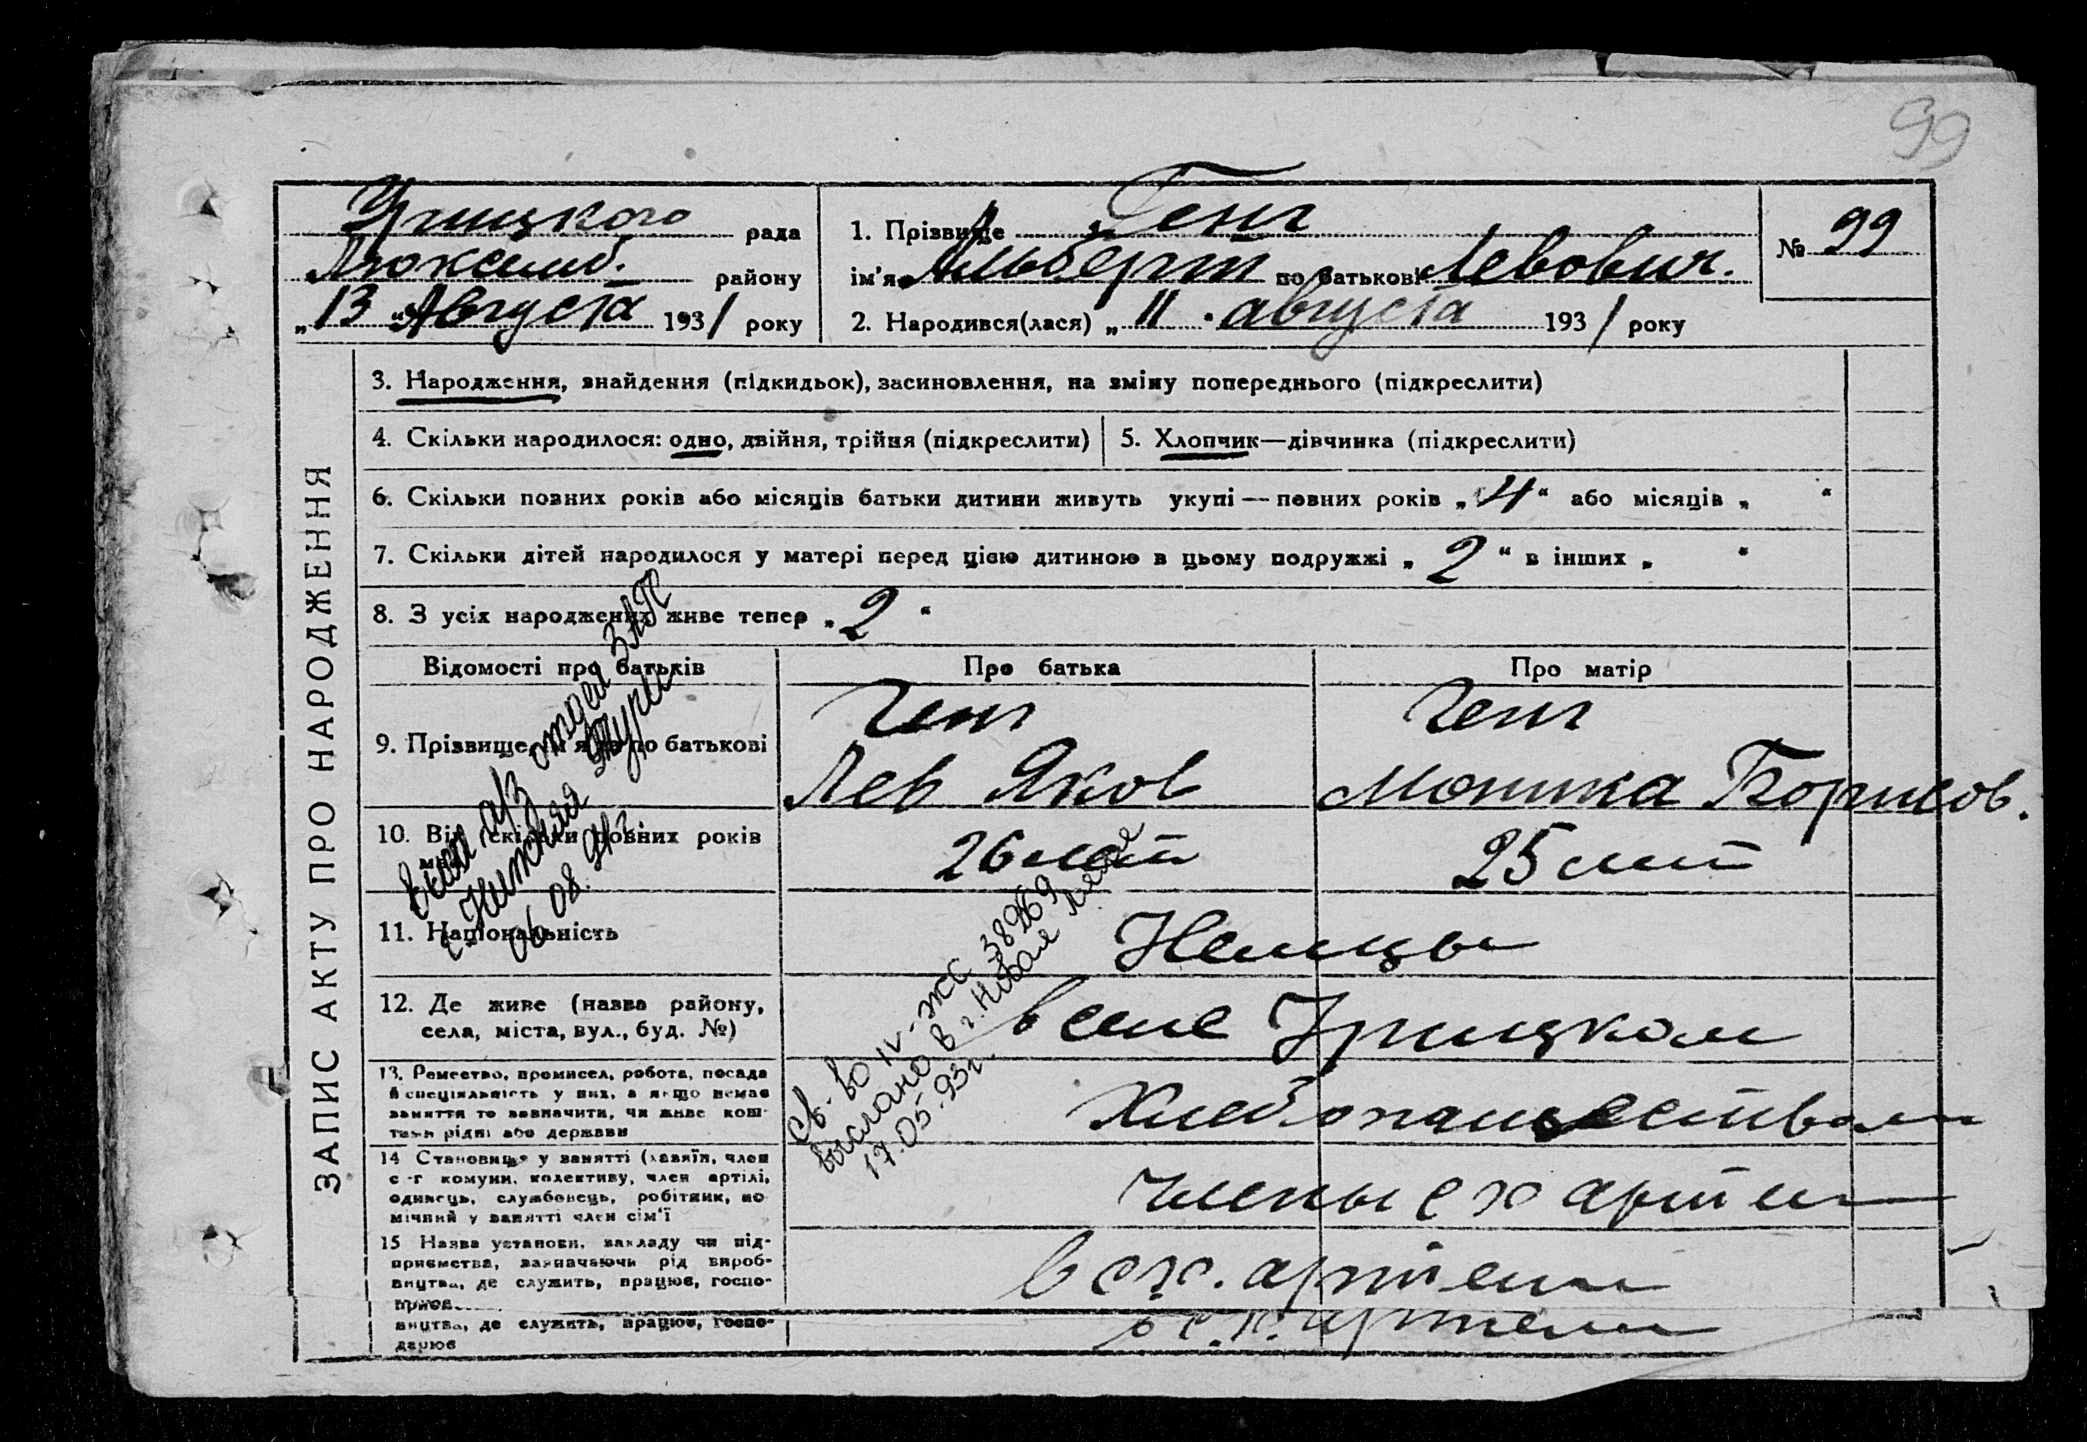 99
Урицкого рада
Люксемб. району
„13 " Августа 1931 року
1. Прізвище Генг
ім'я Альберт по батькові Левович.
2. Народився(лася) „ 11 " августа 1931 року
№ 99
ЗАПИС АКТУ ПРО НАРОДЖЕННЯ
3. Народження, знайдення (підкидьок), засиновлення, на зміну попереднього (підкреслити)
4. Скільки народилося: одно, двійня, трійня (підкреслити)
5. Хлопчик—дівчинка (підкреслити)
6. Скільки повних років або місяців батьки дитини живуть укупі — повних років „ 4 “ або місяців „ “
7. Скільки дітей народилося у матері перед цією дитиною в цьому подружжі „ 2 “ в інших „ “
8. З усіх народжених живе тепер „ 2 “
Відомості про батьків
Про батька
Про матір
9. Прізвище, ім'я та по батькові
Генг
Лев Яков
Генг
Моника Борисов.
10. Вік, скільки повних років
має
26 лет
25 лет
11. Національність
Немцы
12. Де живе (назва району,
села, міста, вул., буд. №)
в селе Урицком
13. Ремество, промисел, робота, посада
й спеціяльність у них, а якщо немає
заняття то зазначити, чи живе кош-
тами рідні або держави
Хлебопашеством
14 Становище у занятті (хазяїн, член
с-г комуни, колективу, член артілі,
одинець, службовець, робітник, по
мічний у занятті член сім'ї
члены с х артели
15 Назва установи, закладу чи під-
приємства, зазначаючи рід вироб-
ництва, де служить, працює, госпо-
в с.х. артели
ництва, де служить, працює, госпо-
дарює
в с.х. артели
отдел ЗАГС
г. Нижняя Тура
06.08.91г.
св-во IV-ЖС 389269
выслано в г. Новая Ляля
17.05.93г.